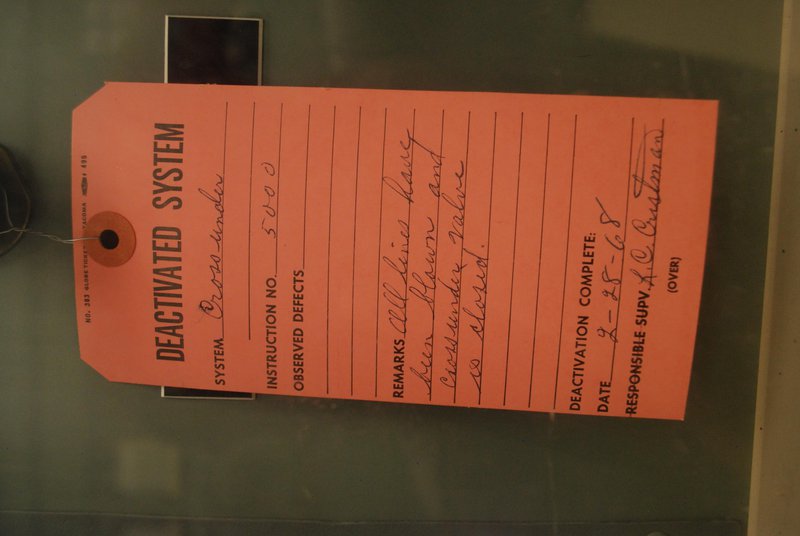 NO. 383 GLOBE TICKET TACOMA 496
DEACTIVATED SYSTEM
SYSTEM Crossunder
INSTRUCTION NO. 5000
OBSERVED DEFECTS
REMARKS All lines have
been blown and
crossunder valve
is closed.
DEACTIVATION COMPLETE:
DATE 2-28-68
RESPONSIBLE SUPV. L. C. Crustman
(OVER)